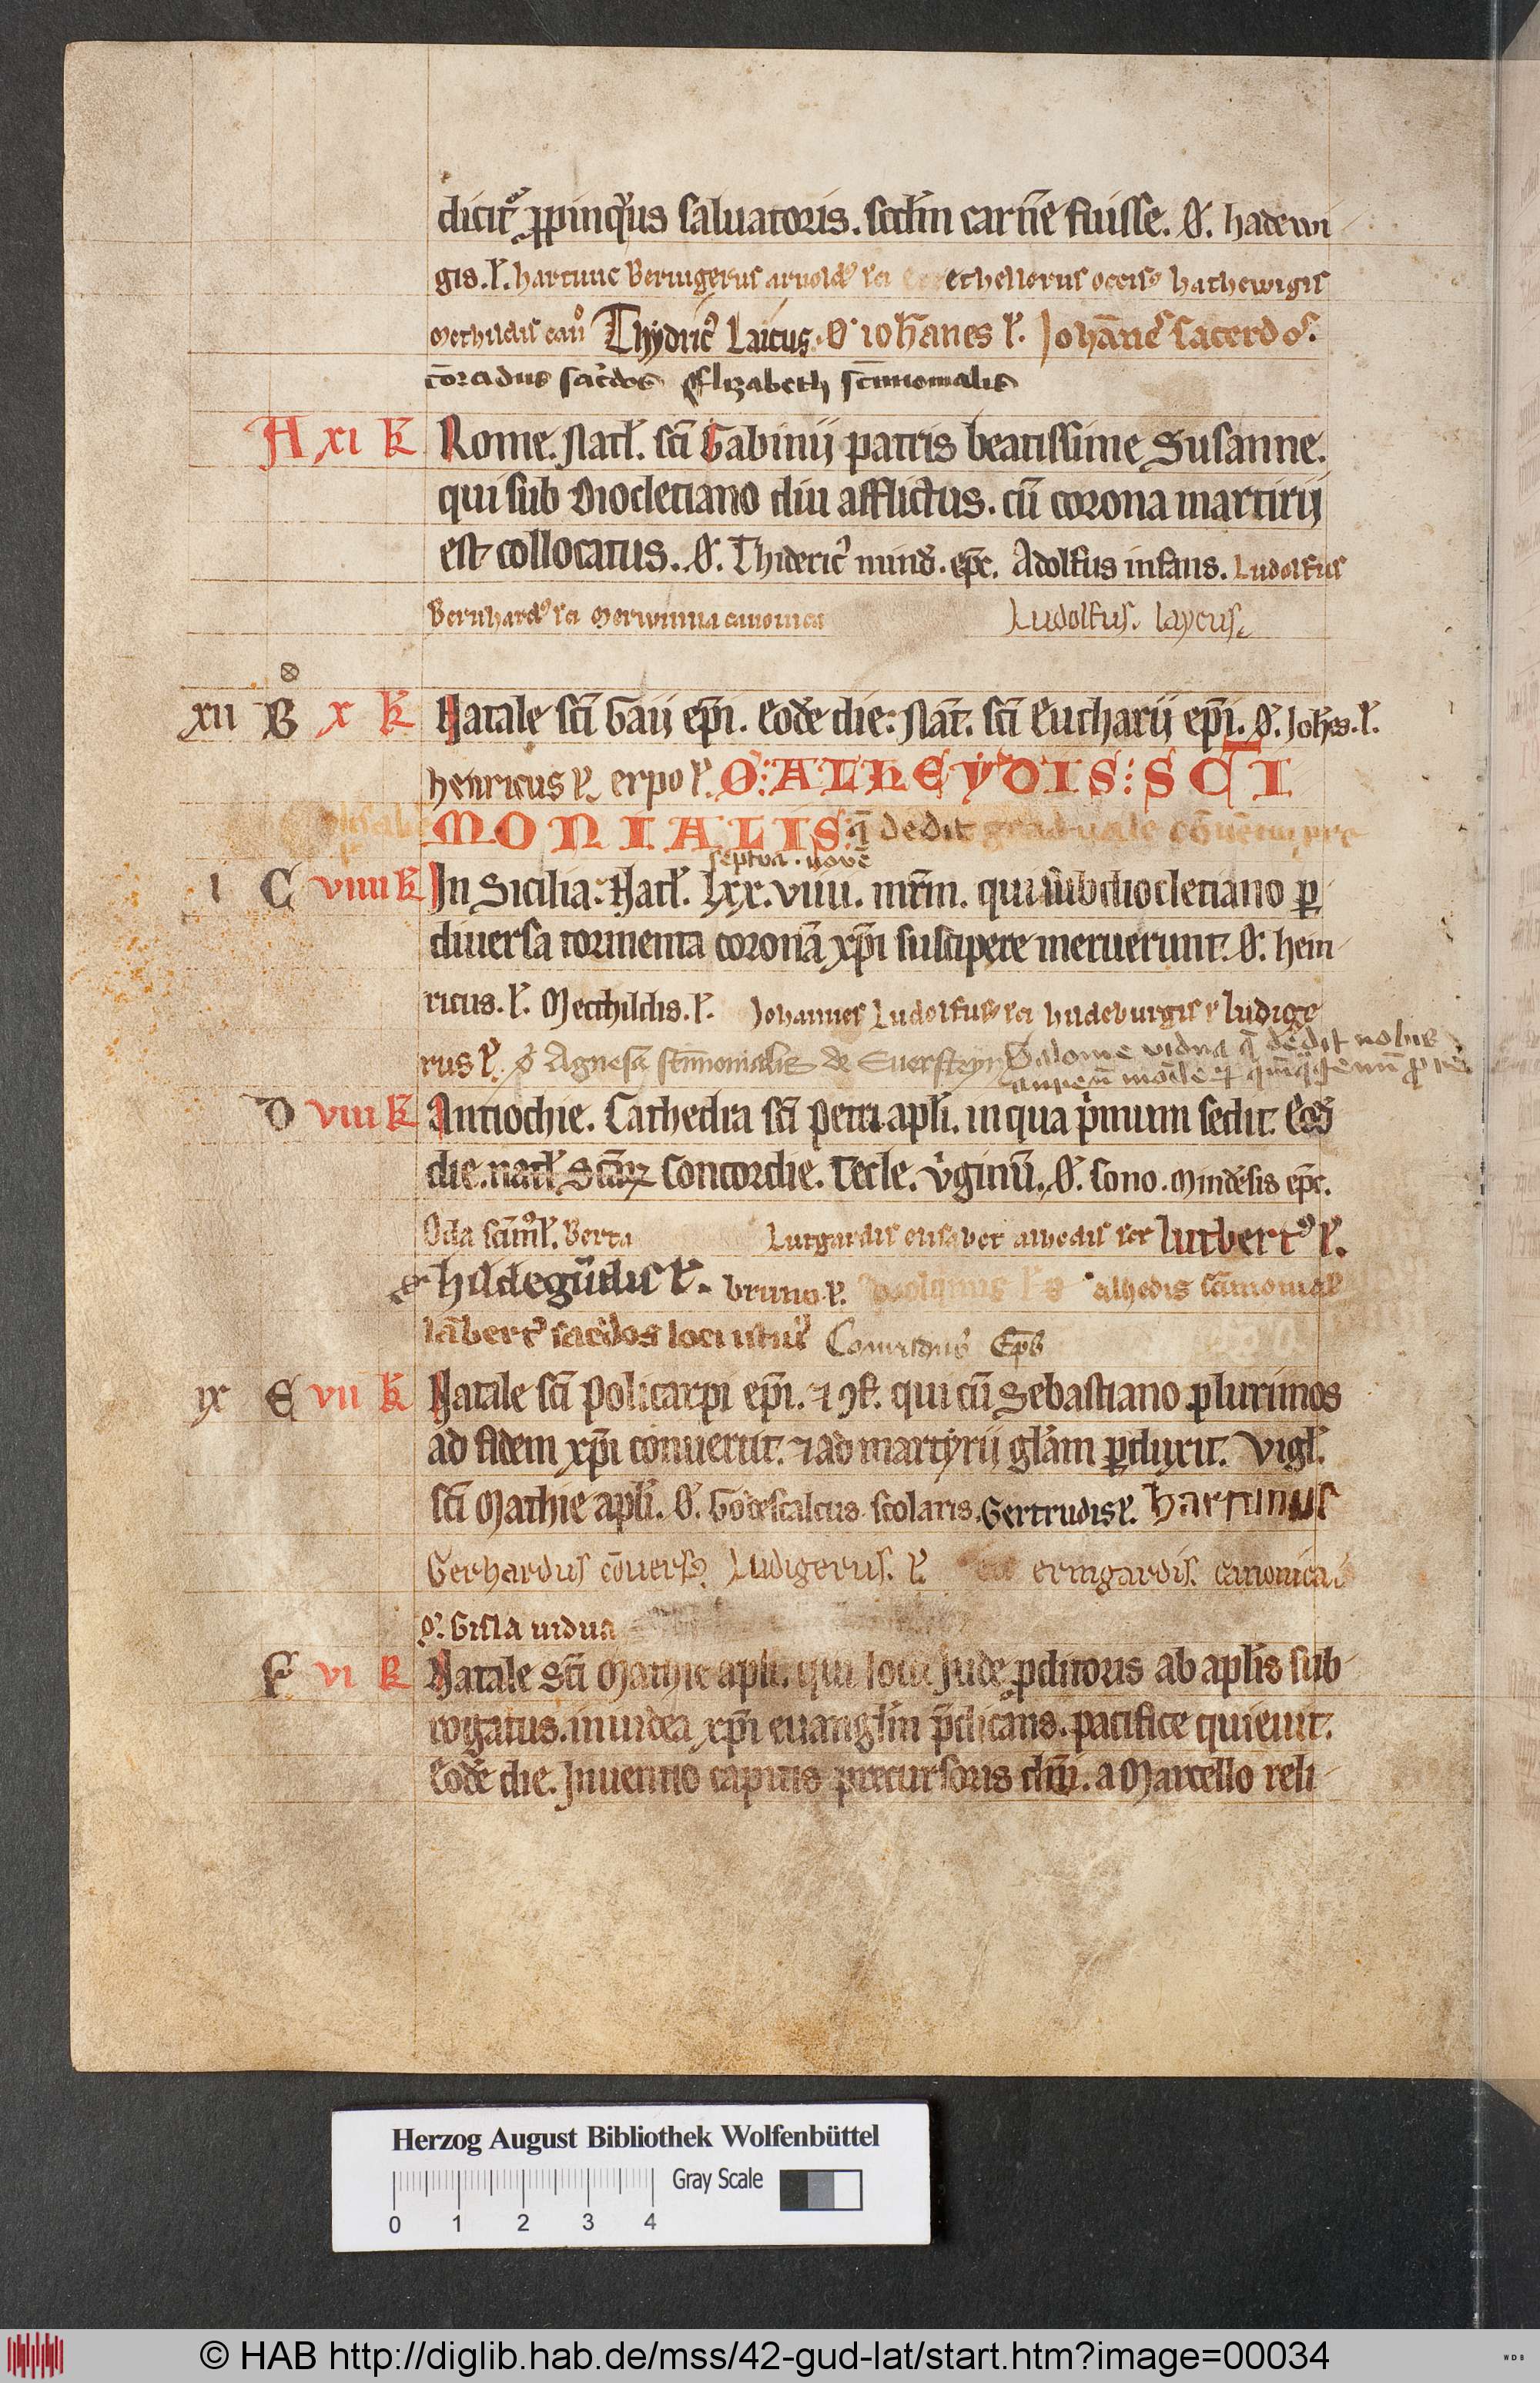 dicit᷑ ꝓpinqᷣus saluatoris. scd̅m carnē fuisse. O᷑. hadewi
gis. l᷑. hartunc Beringerus arnoldꝰ lai ethellerus occisꝰ hathewigis
Methildis can̅ Thydricꝰ Laicus. O᷑ ioh̅anes l᷑. Joha̅nes sacerdos.
co̅radus sac᷑dos Elizabeth sc̅imonialis
A xi k̅ Rome. Natl᷑. sc̅i Gabinij patris beatissime Susanne.
qui sub Diocletiano diu afflictus. cū corona martirij
est collocatus. O᷑. Thidericꝰ mind᷑. ep̅c. Adolfus infans. Ludolfus
Bernhardꝰ lai canonica Ludolfus. laycus.
xii B x k̅ Natale sc̅i Gaij ep̅i. Eodē die. Nat̅. sc̅i Eucharij ep̅i. O᷑. Joh̅s. l᷑.
henricus l᷑. erpo l᷑. O᷑: ALHEYDIS: SC̅I
MONIALIS. q̅ dedit graduale
septua. novē
i C viiii k̅ In Sicilia. Natl᷑. lxx. viiii. mr̅m. qui sub diocletiano ꝑ
diuersa tormenta coronā xp̅i suscipere meruerunt. O᷑. hein
ricus. l᷑. Mecthildis. l᷑. Johannes Ludolfus lai hildeburgis l᷑ ludige
rus l᷑. O᷑ Agnesa sc̅imonialis de Euersteyn Salome vidua q̅ dedit nobis
D viii k̅ Antiochie. Cathedra sc̅i Petri apl᷑i. in qua p᷑mum sedit. Eod᷑
die. natl᷑. Sc̅aꝝ Concordie. Tecle. v᷑ginū. O᷑. Cono. Mindēsis ep̅c.
Oda sc̅imo̅l᷑. Berta Lutgardis elisabet lutbertꝰ l᷑.
hildegūdis l᷑. bruno l᷑. alhedis sc̅imonial᷑
la̅bertꝰ sac᷑dos loci istiꝰ Conradus Ep̅s
ix E vii k̅ Natale sc̅i Policarpi ep̅i. ⁊ ꝯf᷑. qui cū Sebastiano plurimos
ad fidem xp̅i conuertit. ⁊ ad martyrij gl᷑am ꝑduxit. Vigl᷑.
sc̅i Mathie apl᷑i. O᷑. Godescalcus scolaris. Gertrudis l᷑. hartmus
Gerhardus cōuersꝰ. Ludigerus. l᷑. ermgardis. canonica
O᷑. Gisla uidua
F vi k̅ Natale Sc̅i Mathie apl᷑i. qui loco Jude ꝓditoris ab apl᷑is sub
rogatus. in iudea xp̅i euangl᷑m p̅dicans. pacifice quieuit.
Eodē die. Inuentio capitis precursoris dn̅i. a Marcello reli
Herzog August Bibliothek Wolfenbüttel
Gray Scale
0 1 2 3 4
© HAB http://diglib.hab.de/mss/42-gud-lat/start.htm?image=00034
WDB